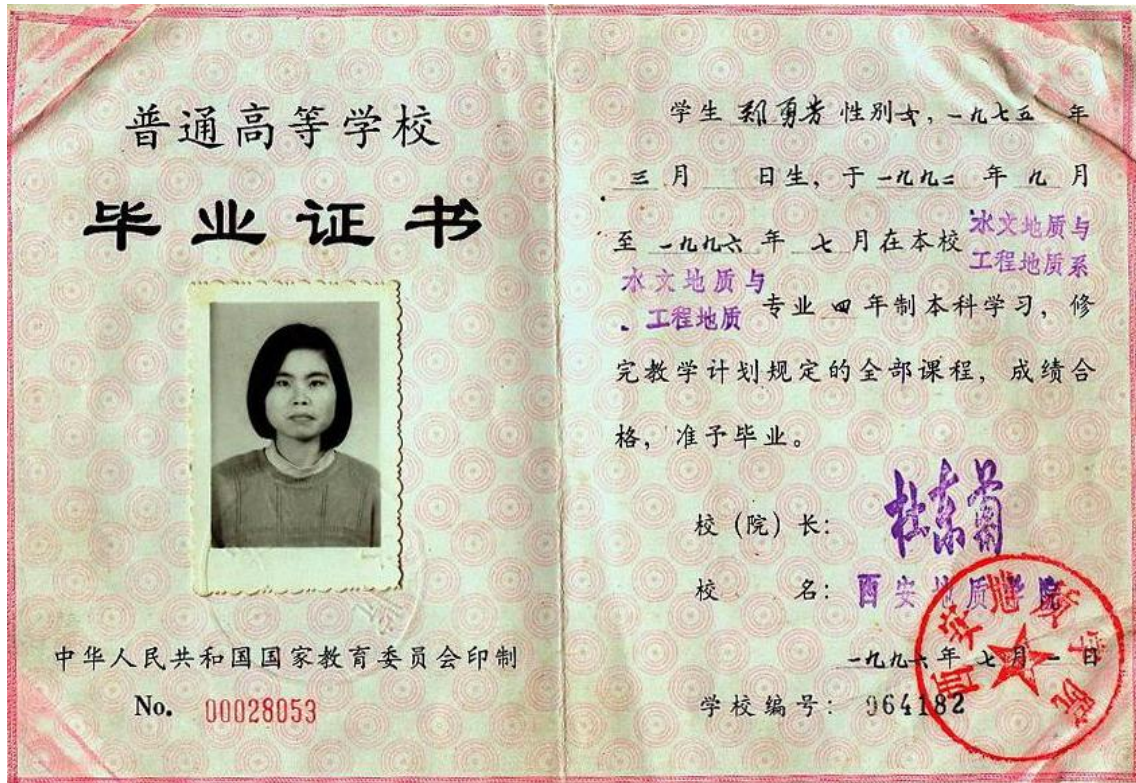 普通高等学校
毕业证书
中华人民共和国国家教育委员会印制
No. 00028053
学生 郑勇芳 性别女，一九七五 年
三 月 日生，于 一九九二 年 九 月
至 一九九六 年 七 月在本校 水文地质与工程地质系
水文地质与工程地质 专业 四 年制本科学习，修
完教学计划规定的全部课程，成绩合
格，准予毕业。
校（院）长：
校 名：西安地质学院
一九九六年 七月 一 日
学校编号：964182
西安地质学院